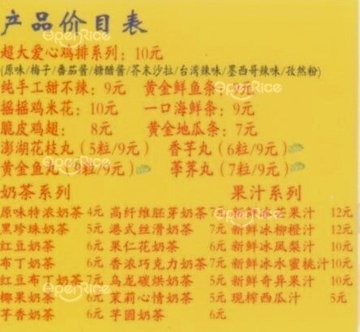 产品价目表
超大爱心鸡排系列：10元
(原味/梅子/番茄酱/糖醋酱/芥末沙拉/台湾辣味/墨西哥辣味/孜然粉)
纯手工甜不辣：9元 黄金鲜鱼条
摇摇鸡米花：10元 一口海鲜条：9元
脆皮鸡翅： 8元 黄金地瓜条：7元
澎湖花枝丸（5粒/9元） 香芋丸（6粒/9元）
黄金鱼丸 /9元） 荸荠丸（7粒/9元）
奶茶系列 果汁系列
原味特浓奶茶 4元 高纤维胚芽奶茶 新鲜冰芒果汁 12元
黑珍珠奶茶 5元 港式丝滑奶茶 7元 新鲜冰柳橙汁 12元
红豆奶茶 6元 果仁花奶茶 6元 新鲜冰凤梨汁 10元
布丁奶茶 6元 香浓巧克力奶茶 7元 新鲜冰水蜜桃汁 10元
红豆布丁奶茶 7元 乌龙碳烘奶茶 5元 新鲜奇异果汁 10元
椰果奶茶 6元 茉莉心情奶茶 5元 现榨西瓜汁 5元
芋香奶茶 6元 芋圆奶茶 6元
ApenRice